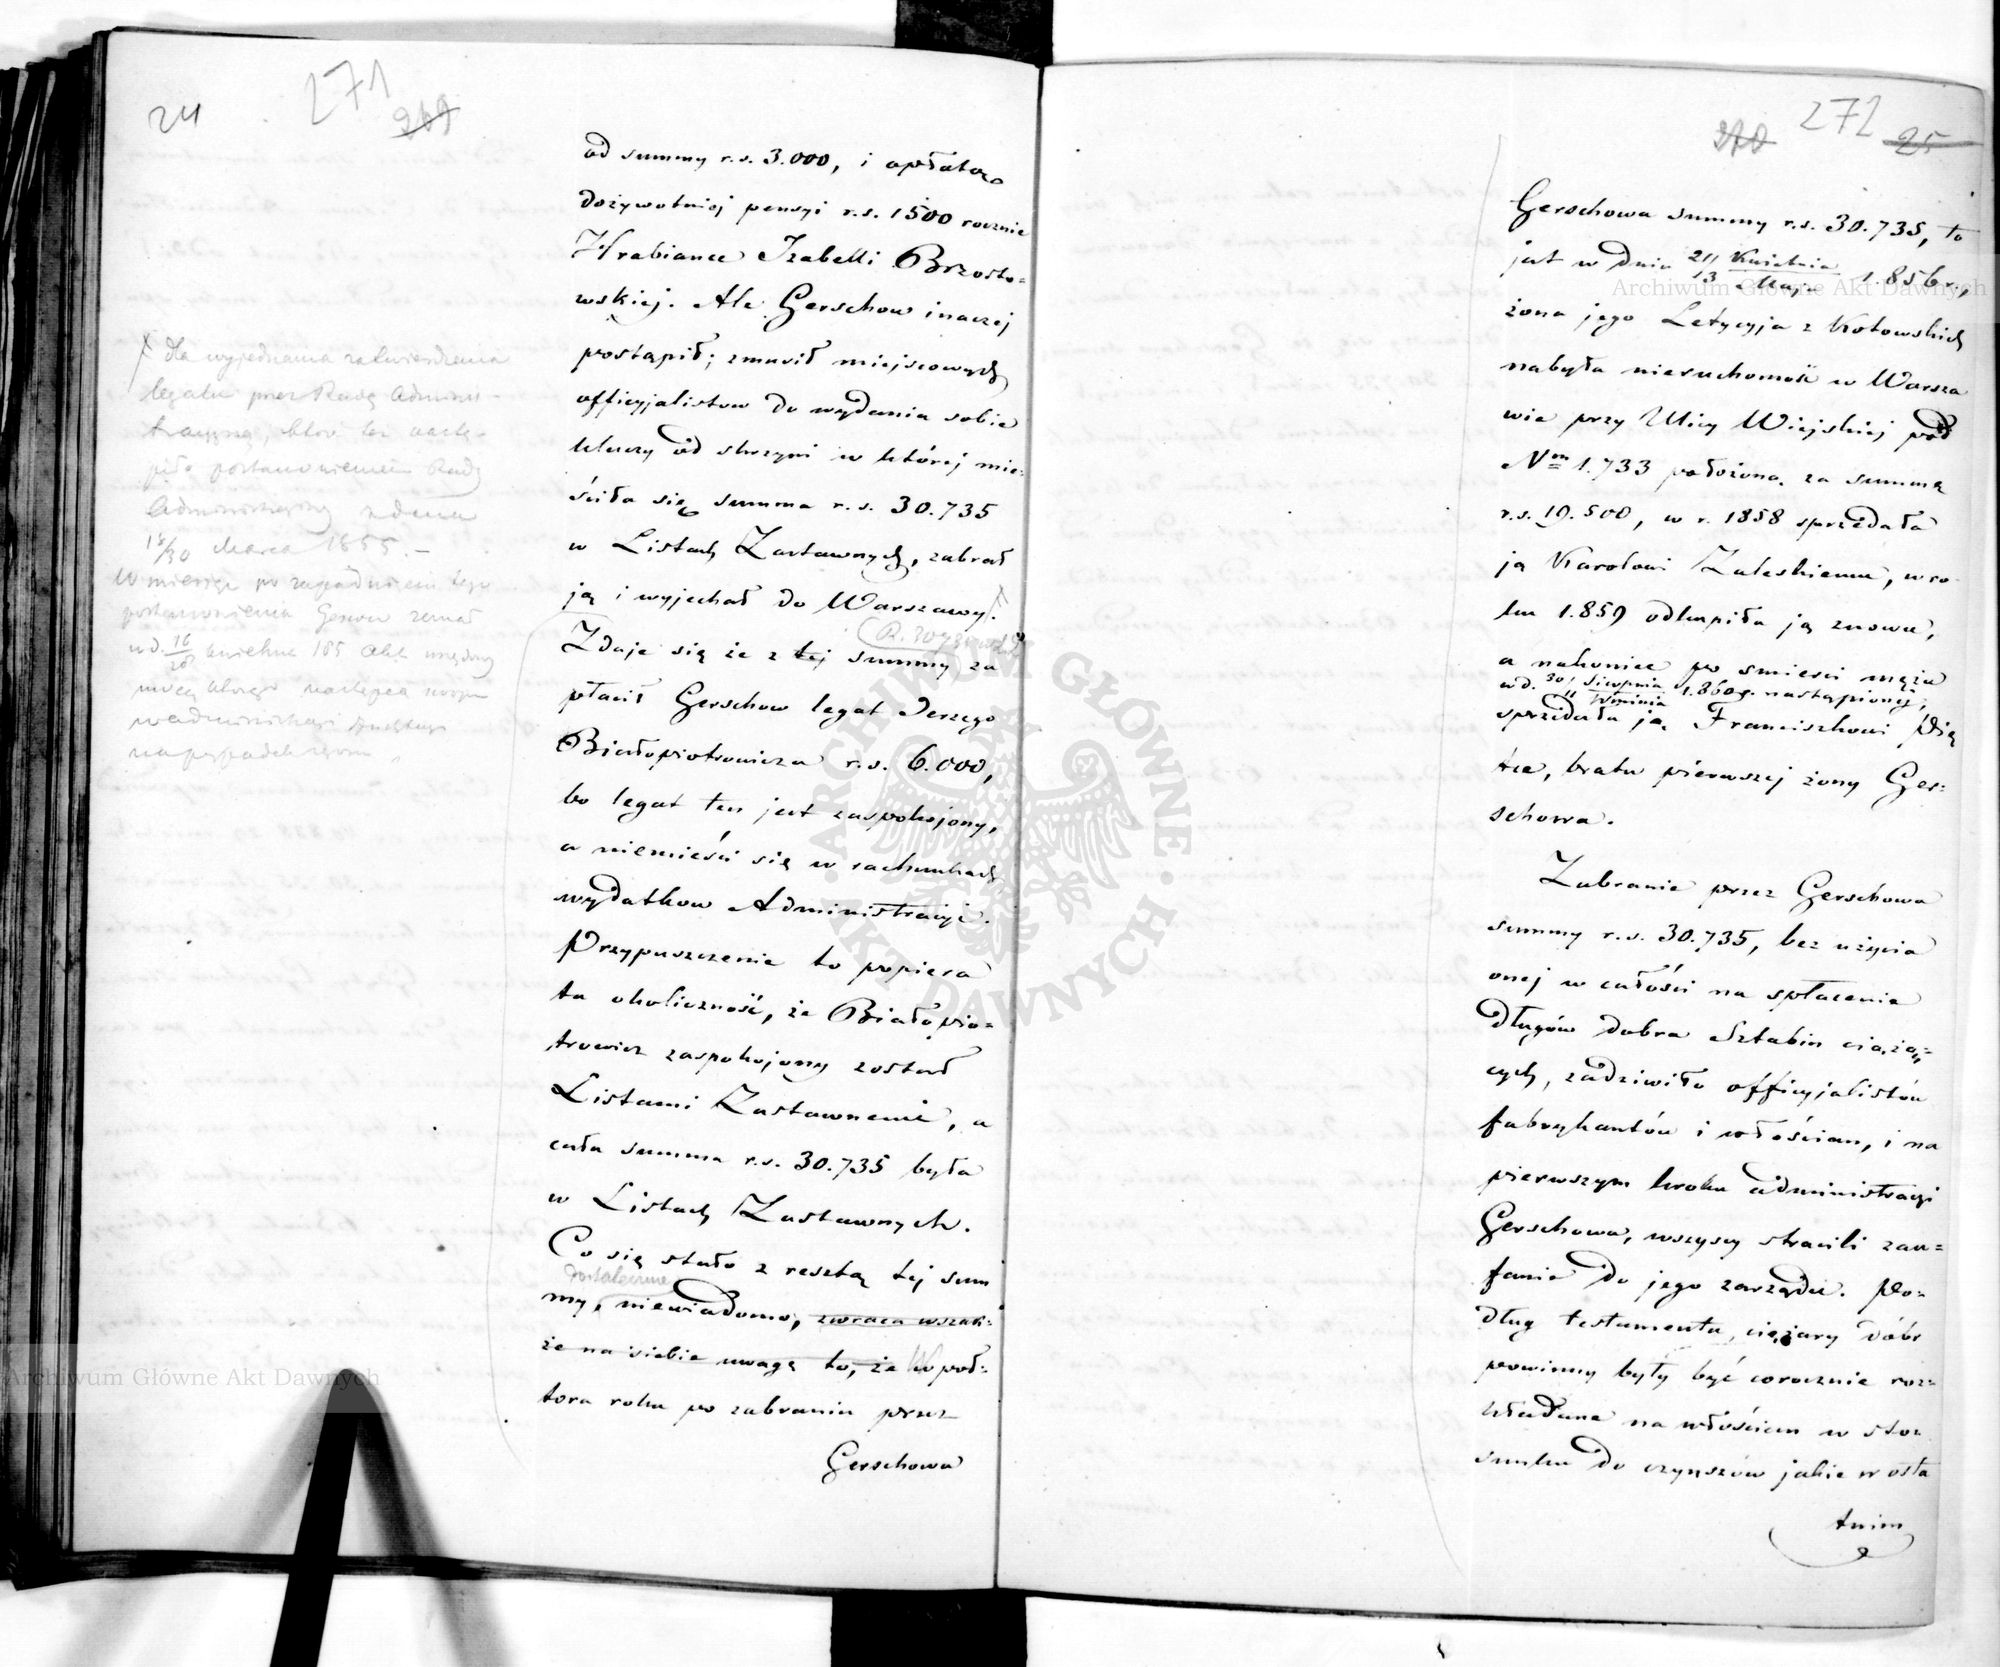 24
271
269
od summy r.s. 3.000, i opłatą
dożywotniej pensyi r.s. 1500 rocznie
Hrabiance Izabelli Brzosto=
wskiej. Ale Gerschow inaczej
postąpił; zmusił miejscowych
officyjalistow do wydania sobie
kluczy od skrzyni w której mie=
ściła się summa r.s. 30.735
w Listach Zastawnych, zabrał
ją i wyjechał do Warszawy.
Zdaje się że z tej summy za
płacił Gerschow legat Jerzego
Białopiotrowicza r.s. 6.000,
bo legat ten jest zaspokojony,
a niemieści się w rachunkach
wydatkow Administracyi.
Przypuszczenie to popiera
ta okoliczność, że Białopio=
trowicz zaspokojony został
Listami Zastawnemi, a
cała summa r.s. 30.735 była
w Listach Zastawnych.
Co się stało z resztą tej sum
dostatecznie
my, niewiadomo, zwraca wszak=
że na siebie uwagę to, że W poł=
tora roku po zabraniu przez
Gerschowa
dla wyjednania zatwierdzenia
legatu przez Radę Adminis-
tracyjną, które też nastą-
piło postanowieniem Rady
Administracyjnej z dnia
18/30 Marca 1855.—
W miesiąc po tego
postanowienia
w d. 16/28 kwietnia 185
mocą którego
270
272
25
Gerschowa summy r.s. 30.735, to
jest w dniu 21 Kwietnia / 13 Maja 1.856 r.,
żona jego Letycyja z Kotowskich
nabyła nieruchomość w Warsza
wie przy Ulicy Wiejskiej pod
Nrm 1.733 położoną za summę
r.s. 19.500, w r. 1858 sprzedała
ją Karolowi Zaleskiemu, w ro
ku 1.859 odkupiła ją znowu,
a nakoniec po śmierci męża
w d. 30 Sierpnia / 11 Września 1.860 r. nastąpionej,
sprzedała ją Franciszkowi Pię
tce, bratu pierwszej żony Ger=
schowa.
Zabranie przez Gerschowa
summy r.s. 30.735, bez użycia
onej w całości na spłacenie
długów dobra Sztabin ciążą=
cych, zadziwiło officyjalistów
fabrykantów i włościan, i na
pierwszym kroku administracyi
Gerschowa, wszyscy stracili zau=
fanie do jego zarządu. Po=
dług testamentu, ciężary dóbr
powinny były być corocznie roz=
kładane na włościan w sto=
sunku do czynszów jakie w osta
tnim
Archiwum Główne Akt Dawnych
Archiwum Główne Akt Dawnych
ARCHIWUM GŁÓWNE · AKT DAWNYCH ·